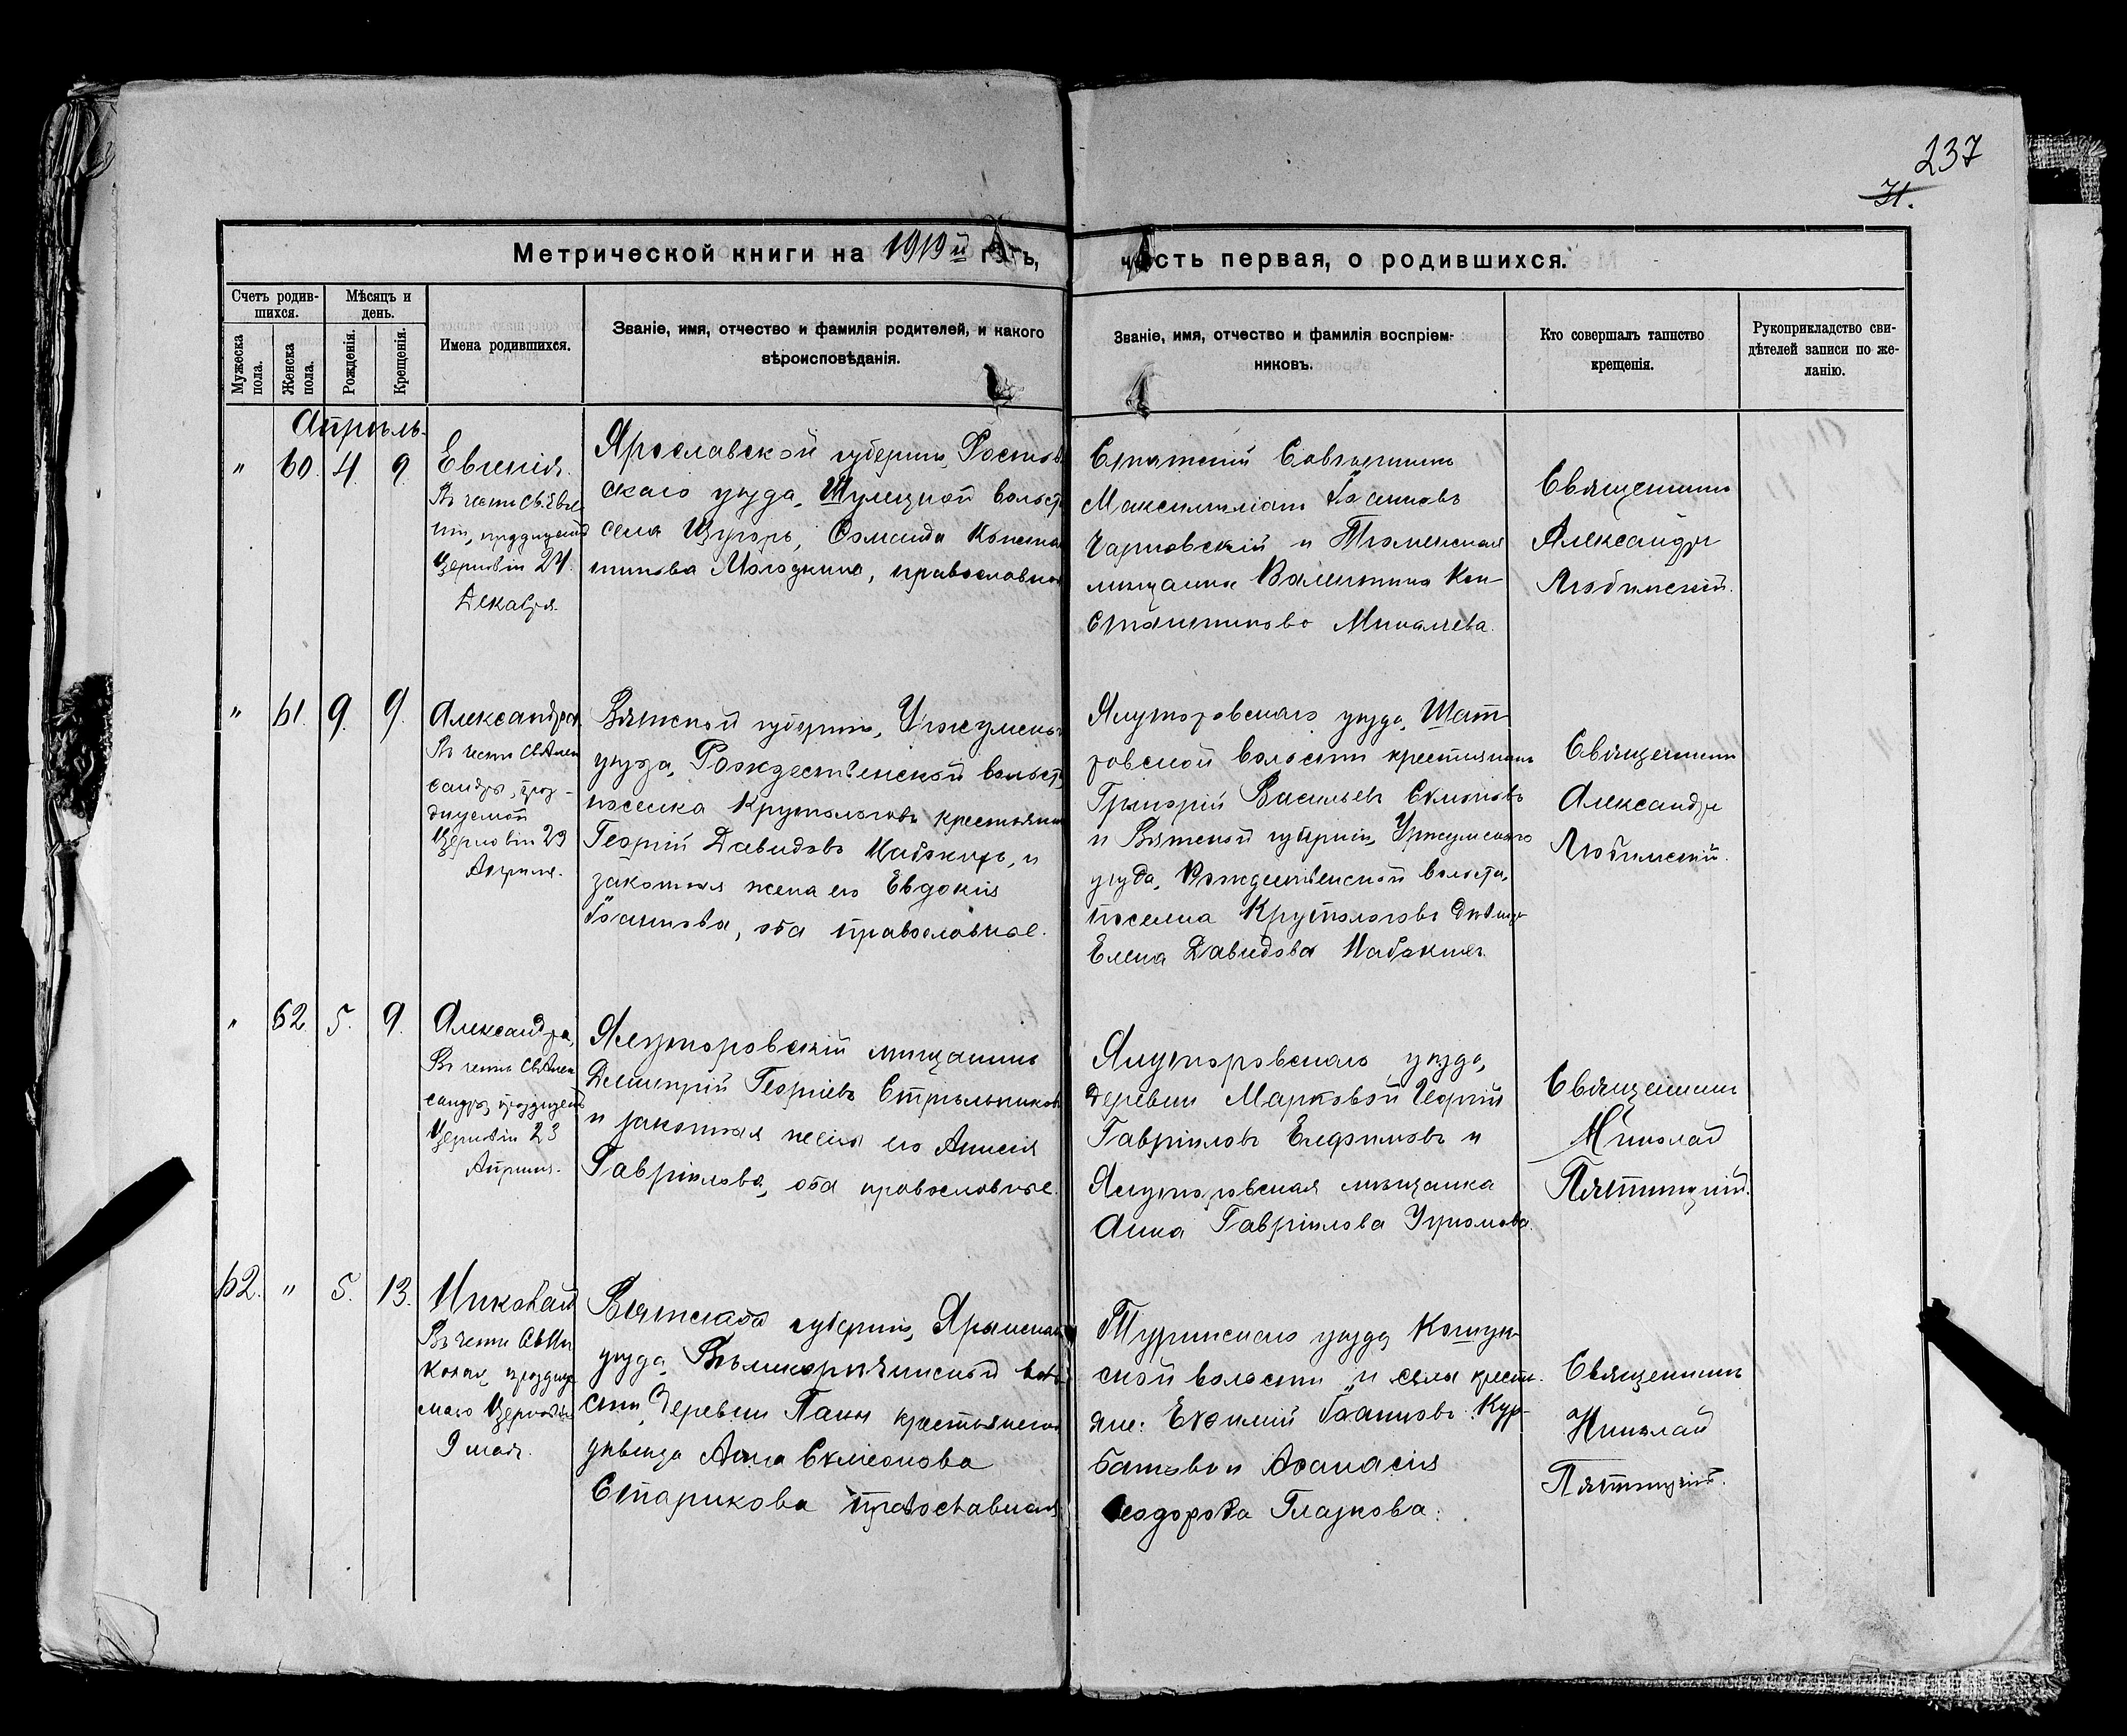 237
31.
Метрической книги на 1919й годъ,
часть первая, о родившихся.
Счетъ родив-
шихся.
Мѣсяцъ и
день.
Мужеска
пола.
Женска
пола.
Рожденія.
Крещенія.
Имена родившихся.
Званіе, имя, отчество и фамилія родителей, и какого
вѣроисповѣданія.
Званіе, имя, отчество и фамилія воспріем-
никовъ.
Кто совершалъ таинство
крещенія.
Рукоприкладство сви-
дѣтелей записи по же-
ланію.
Апрѣль.
" 60. 4. 9.
Евгенія.
Въ честь Св. Евге-
ніи, празднуемой
Церковію 24
Декабря.
Ярославской губерніи, Ростов-
скаго уѣзда, Шулецкой волости
села
православной
Статскій Совѣтникъ
Максимиліанъ Іоанновъ
Чарновскій и Тюменская
мѣщанка Валентина Кон-
стантинова Михалева.
Священникъ
Александръ
Любимскій.
" 61. 9. 9.
Александра.
Въ честь Св. Алек
сандры, праз-
днуемой
Церковію 23
Апрѣля.
Вятской губерніи, Уржумскаго
уѣзда, Рождественской волости,
поселка Круталоговъ крестьянинъ
Георгій Давидовъ и
законная жена его Евдокія
Іоаннова, оба православные.
Ялуторовскаго уѣзда, Шат-
ровской волости крестьянинъ
Григорій Васильевъ
и Вятской губерніи, Уржумскаго
уѣзда, Рождественской волости,
поселка Круталоговъ дѣвица
Елена Давидова
Священникъ
Александръ
Любимскій.
" 62. 5. 9.
Александра,
Въ честь Св. Алек
сандры, празднуемой
Церковію 23
Апрѣля.
Ялуторовскій мѣщанинъ
Димитрій Георгіевъ Стрѣльниковъ
и законная жена его Анисія
Гавріилова, оба православные.
Ялуторовскаго уѣзда,
деревни Марковой Георгій
Гавріиловъ Елфимовъ и
Ялуторовская мѣщанка
Анна Гавріилова
Священникъ
Николай
Пятницкій.
62. " 5. 13.
Николай
Въ честь Св. Ни
колая, праздну
емаго Церковію
9 мая.
Вятской губерніи, Яранскаго
уѣзда, воло-
сти, деревни крестьянская
дѣвица Анна Симеонова
Старикова православная.
Туринскаго уѣзда, Кошук-
ской волости и села кресть-
яне: Евфимій Іоанновъ Кур-
батовъ и Афанасія
Ѳеодорова Глазкова.
Священникъ
Николай
Пятницкій.